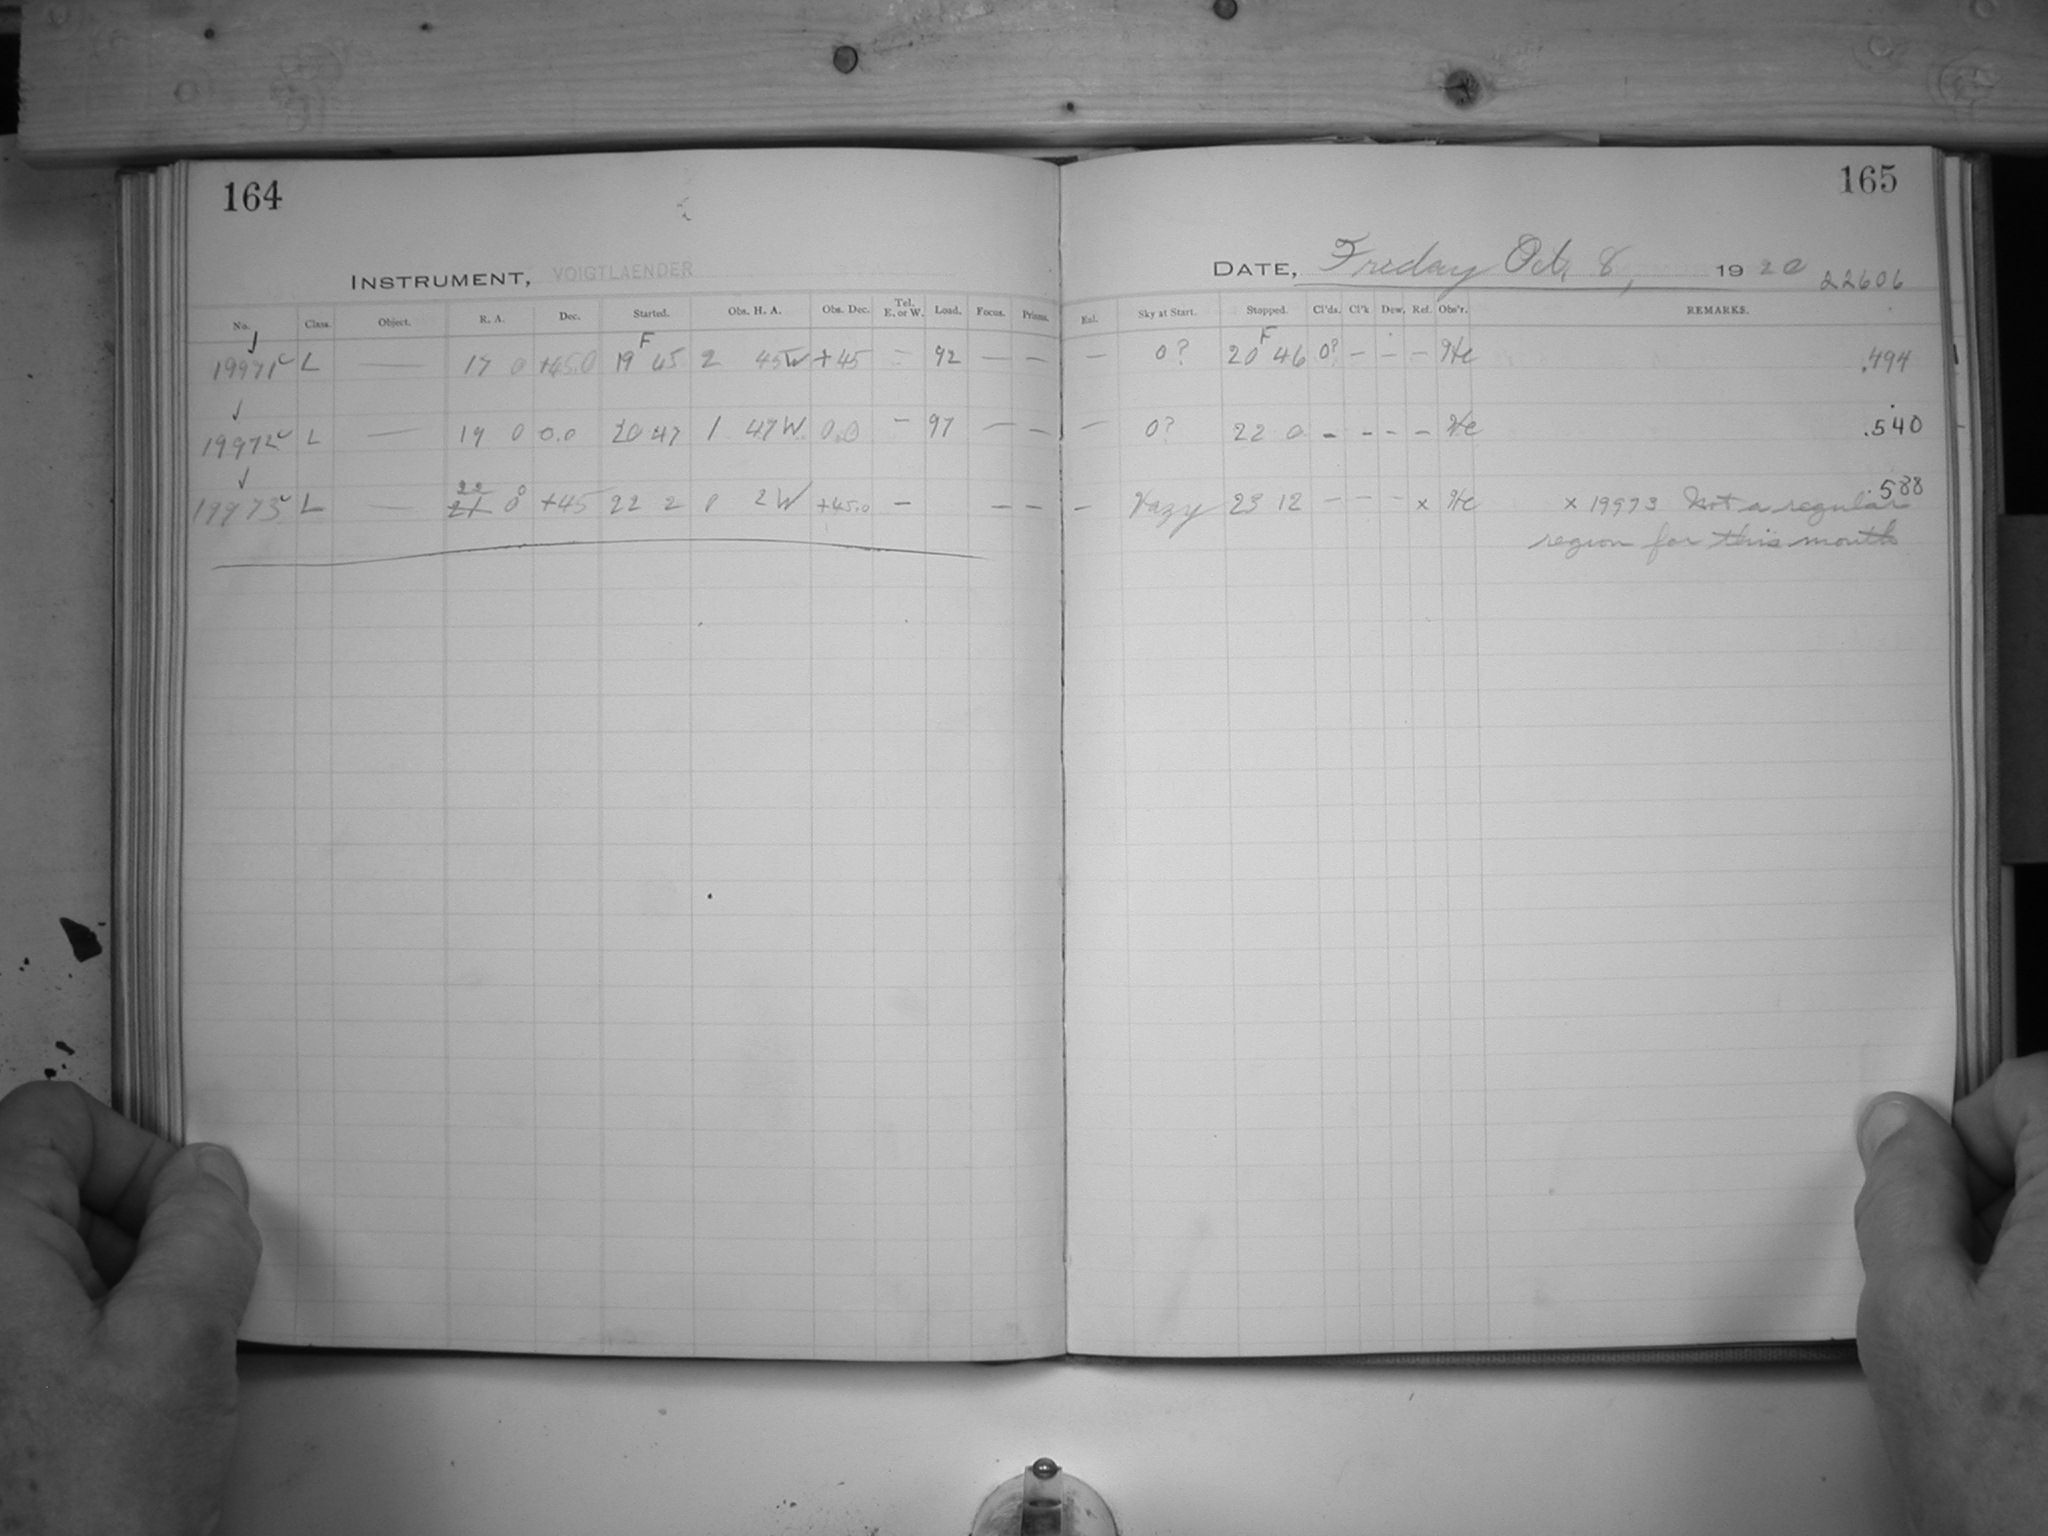 164
INSTRUMENT, VOIGTLAENDER
No. Class. Object. R. A. Dec. Started. Obs. H. A. Obs. Dec. Tel. E. or W. Load. Focus. Prisms.
19971 L — 17 0 +45.0 19 F 45 2 45W +45 — 92 — —
19972 L — 19 0 0.0 20 47 1 47W 0.0 — 97 — —
19973 L — 21 22 0 +45 22 2 0 2W +45.0 — — —
165
DATE, Friday Oct. 8, 1920 22606
Ext. Sky at Start. Stopped. Cl'ds. Cl'k Dew. Ref. Obs'r. REMARKS.
— 0? 20 F 46 0? — — — He .494
— 0? 22 0 — — — — He .540
— Hazy 23 12 — — — x He x 19973 Not a regular .588
region for this month